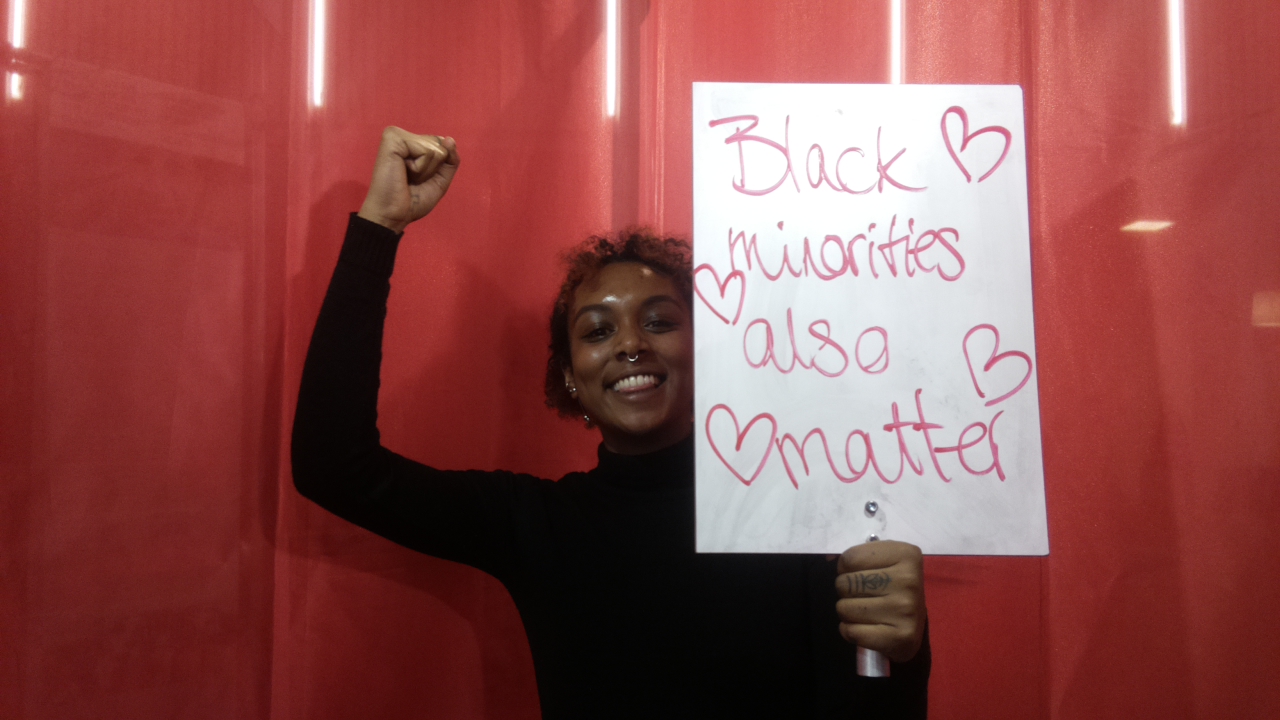 Black
minorities
also
matter